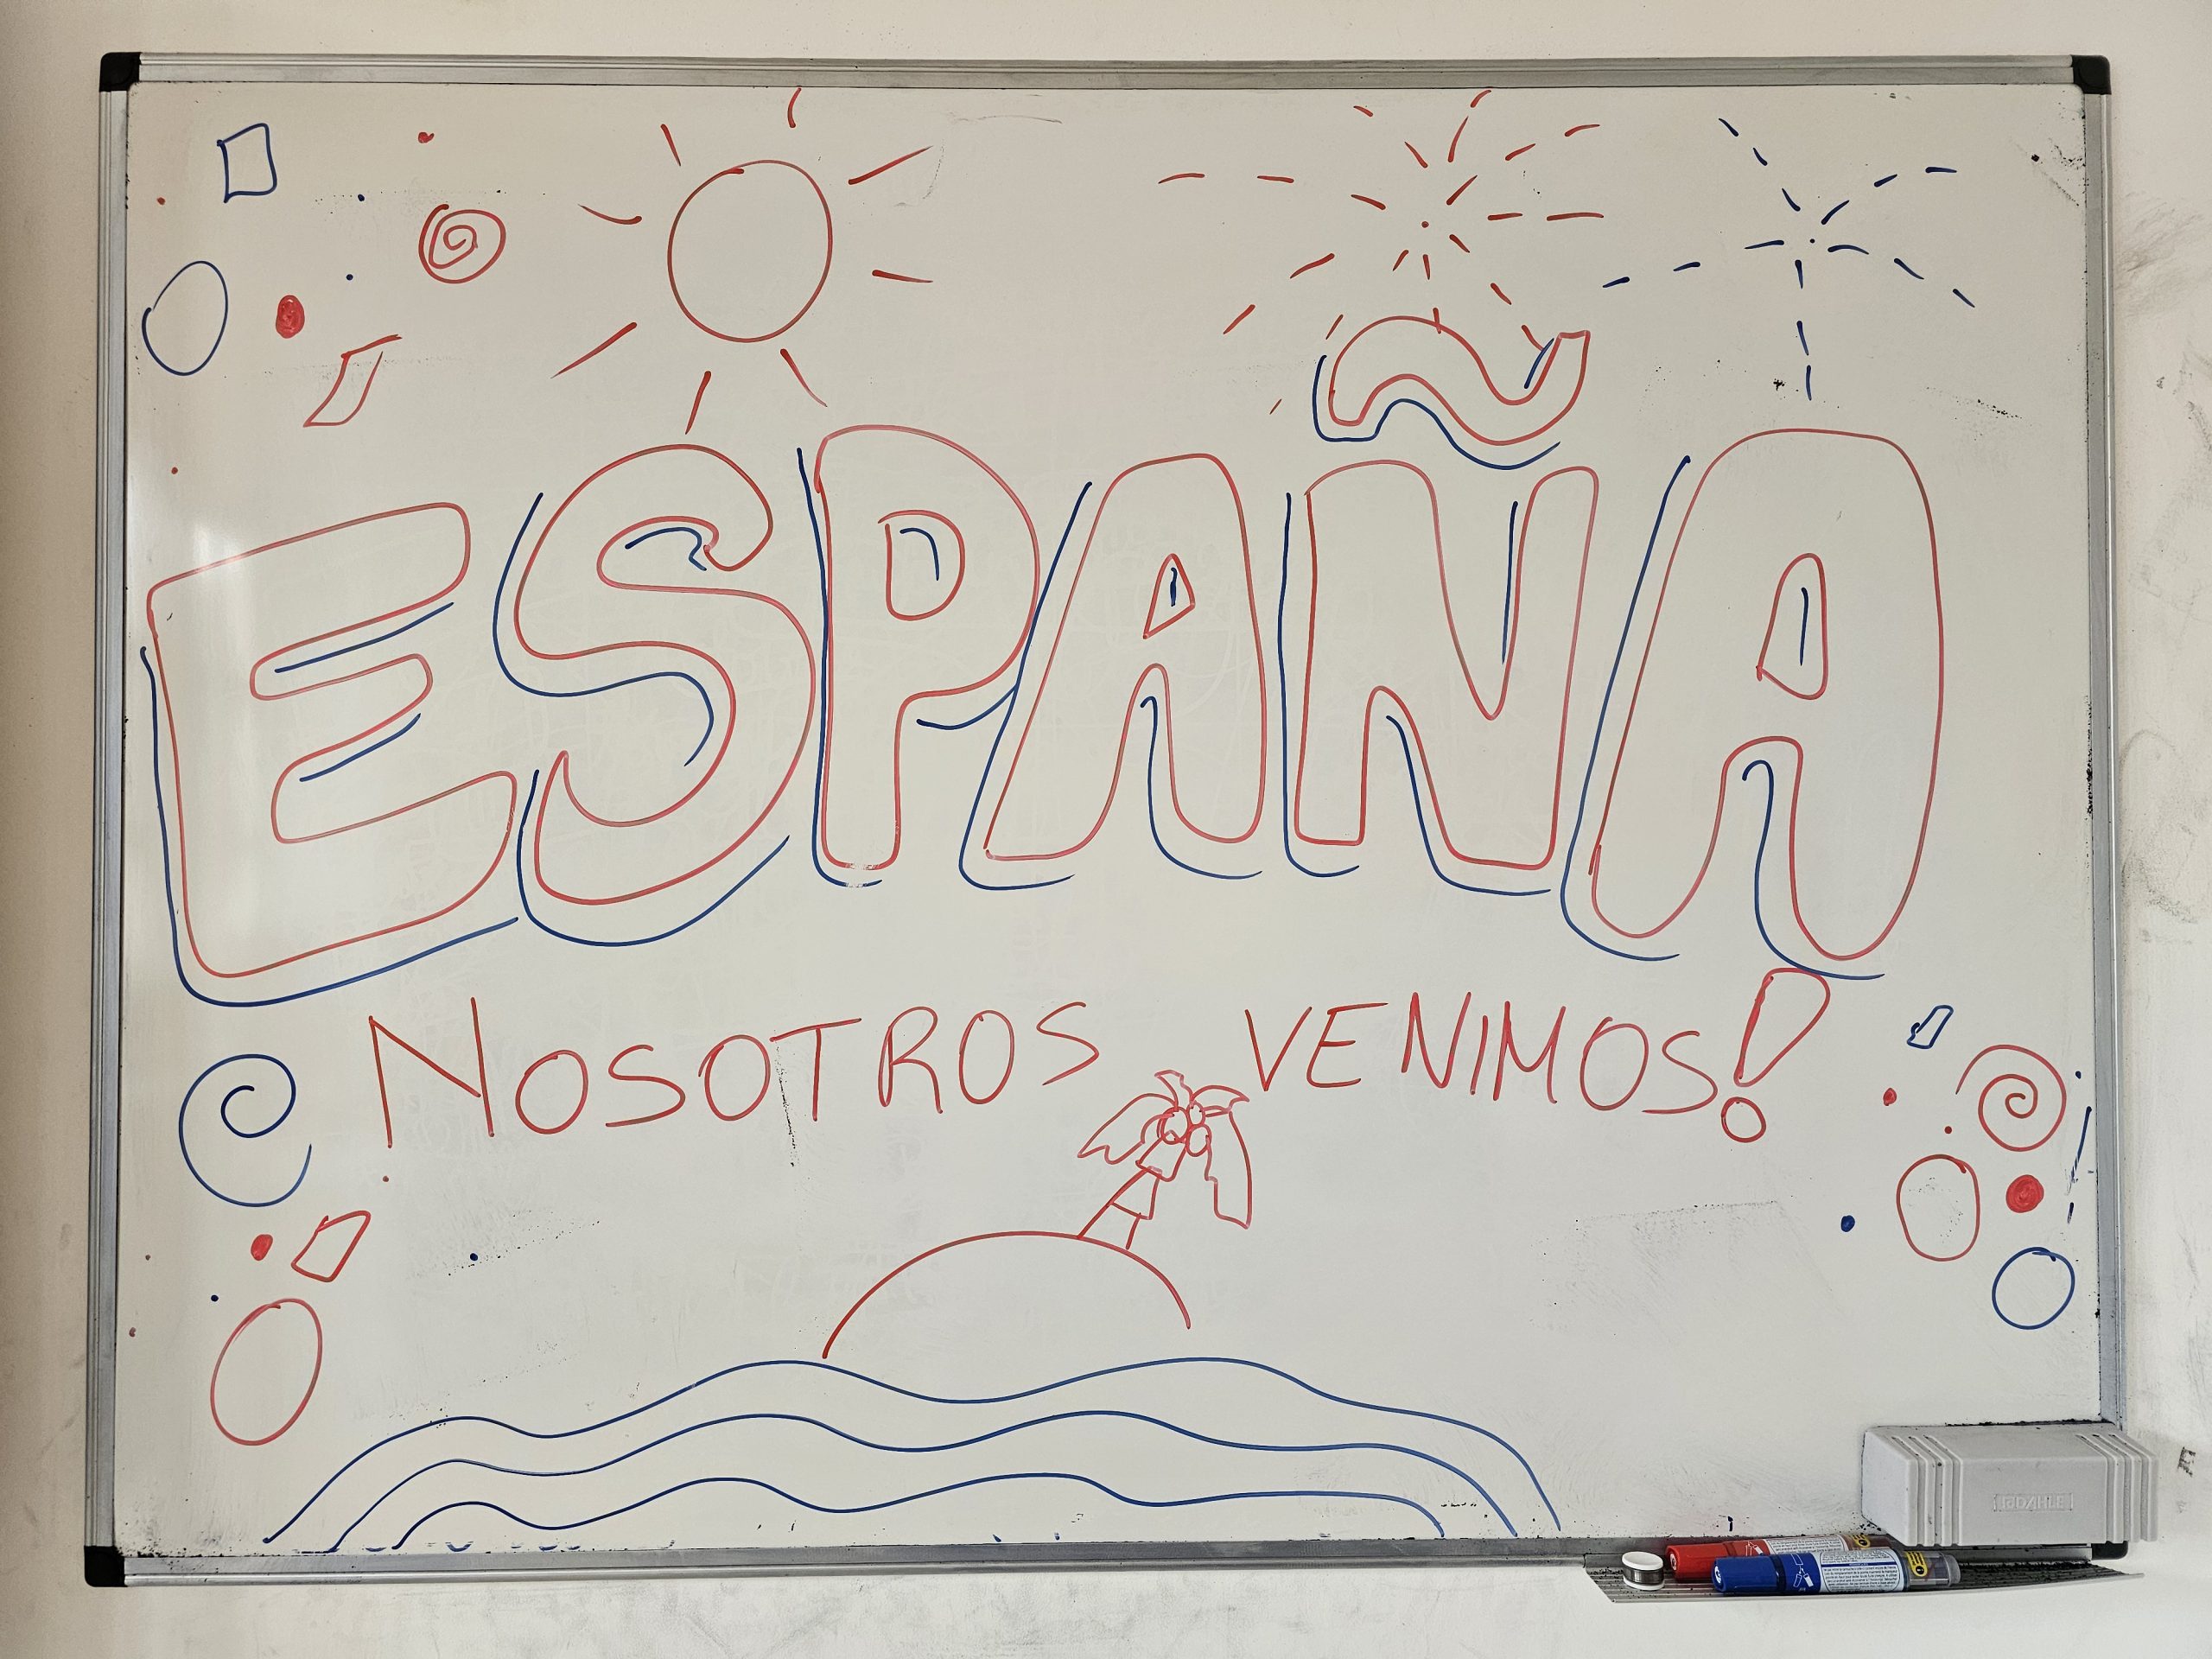 ESPAÑA
NOSOTROS VENIMOS!